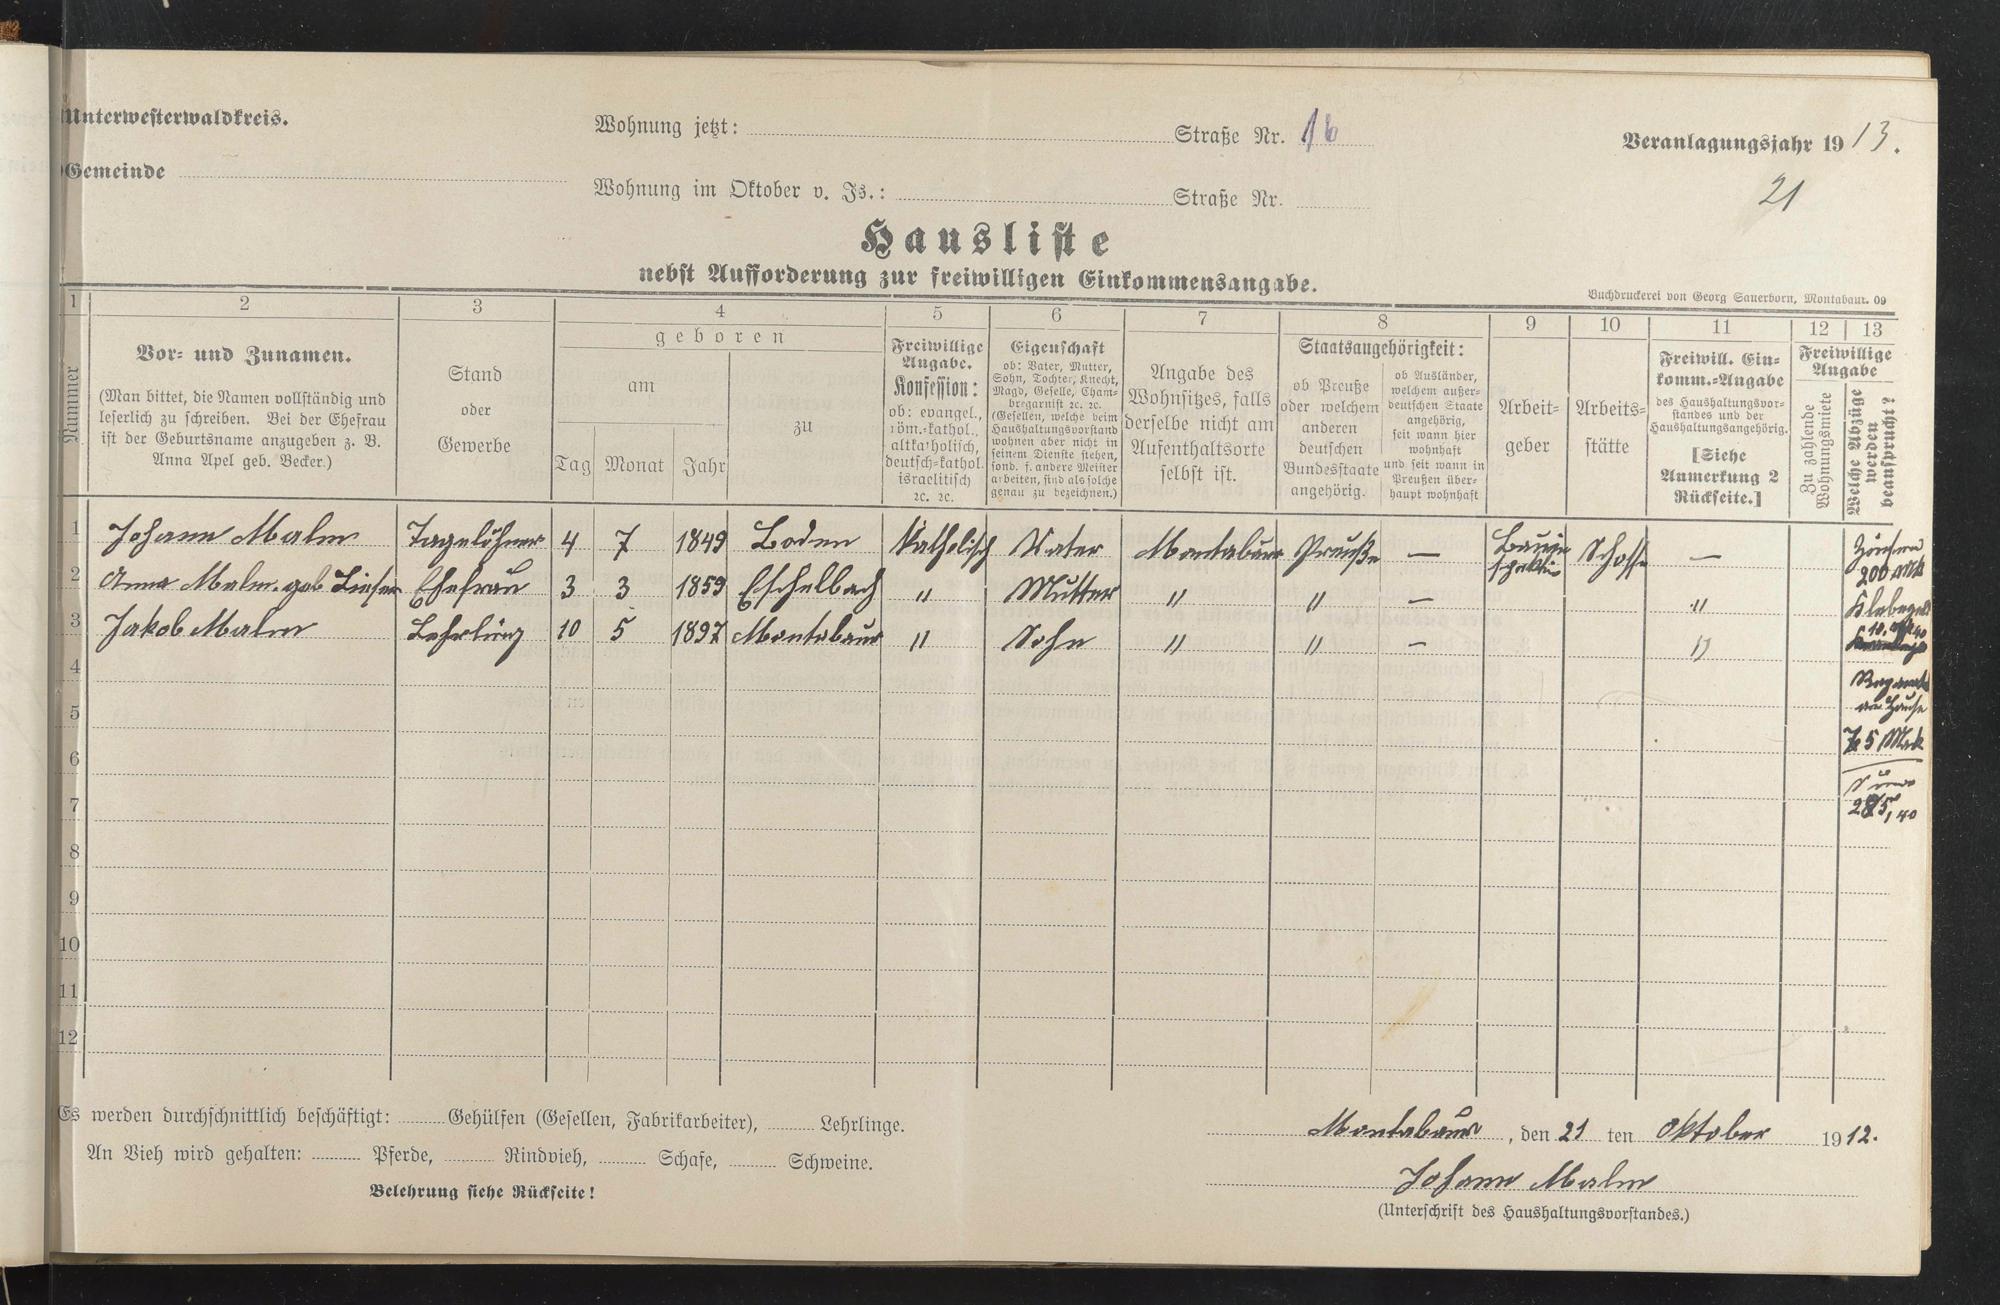 Unterwesterwaldkreis.
Wohnung jetzt: Straße Nr. 16
Veranlagungsjahr 1913.
Gemeinde
Wohnung im Oktober v. Js.: Straße Nr.
21
Hausliste
nebst Aufforderung zur freiwilligen Einkommensangabe.
Buchdruckerei von Georg Sauerborn, Montabaur. 09
1 2 3 4 5 6 7 8 9 10 11 12 13
Nummer
Vor- und Zunamen.
(Man bittet, die Namen vollständig und
leserlich zu schreiben. Bei der Ehefrau
ist der Geburtsname anzugeben z. B.
Anna Apel geb. Becker.)
Stand
oder
Gewerbe
geboren
am
zu
Tag Monat Jahr
Freiwillige
Angabe.
Konfession:
ob: evangel.,
röm.-kathol.,
altkatholisch,
deutsch-kathol.
israelitisch
ꝛc. ꝛc.
Eigenschaft
ob: Vater, Mutter,
Sohn, Tochter, Knecht,
Magd, Geselle, Cham-
bregarnist ꝛc. ꝛc.
(Gesellen, welche beim
Haushaltungsvorstand
wohnen aber nicht in
seinem Dienste stehen,
sond. f. andere Meister
arbeiten, sind als solche
genau zu bezeichnen.)
Angabe des
Wohnsitzes, falls
derselbe nicht am
Aufenthaltsorte
selbst ist.
Staatsangehörigkeit:
ob Preuße
oder welchem
anderen
deutschen
Bundesstaate
angehörig.
ob Ausländer,
welchem außer-
deutschen Staate
angehörig,
seit wann hier
wohnhaft
und seit wann in
Preußen über-
haupt wohnhaft
Arbeit-
geber
Arbeits-
stätte
Freiwill. Ein-
komm.-Angabe
des Haushaltungsvor-
standes und der
Haushaltungsangehörig.
[Siehe
Anmerkung 2
Rückseite.]
Freiwillige
Angabe
Zu zahlende
Wohnungsmiete
Welche Abzüge
werden
beansprucht?
1 Johann Malm Tagelöhner 4 7 1849 Boden Katholisch Vater Montabaur Preuße — —
2 Anna Malm. geb. Ehefrau 3 3 1859 Eschelbach " Mutter " " — "
3 Jakob Malm Lehrling 10 5 1897 Montabaur " Sohn " " — "
Zinsen
200 Mk
Klebegeld
4
5
6
75 Mrk
7
8
9
10
11
12
Es werden durchschnittlich beschäftigt: Gehülfen (Gesellen, Fabrikarbeiter), Lehrlinge.
An Vieh wird gehalten: Pferde, Rindvieh, Schafe, Schweine.
Belehrung siehe Rückseite!
Montabaur, den 21 ten Oktober 1912.
Johann Malm
(Unterschrift des Haushaltungsvorstandes.)